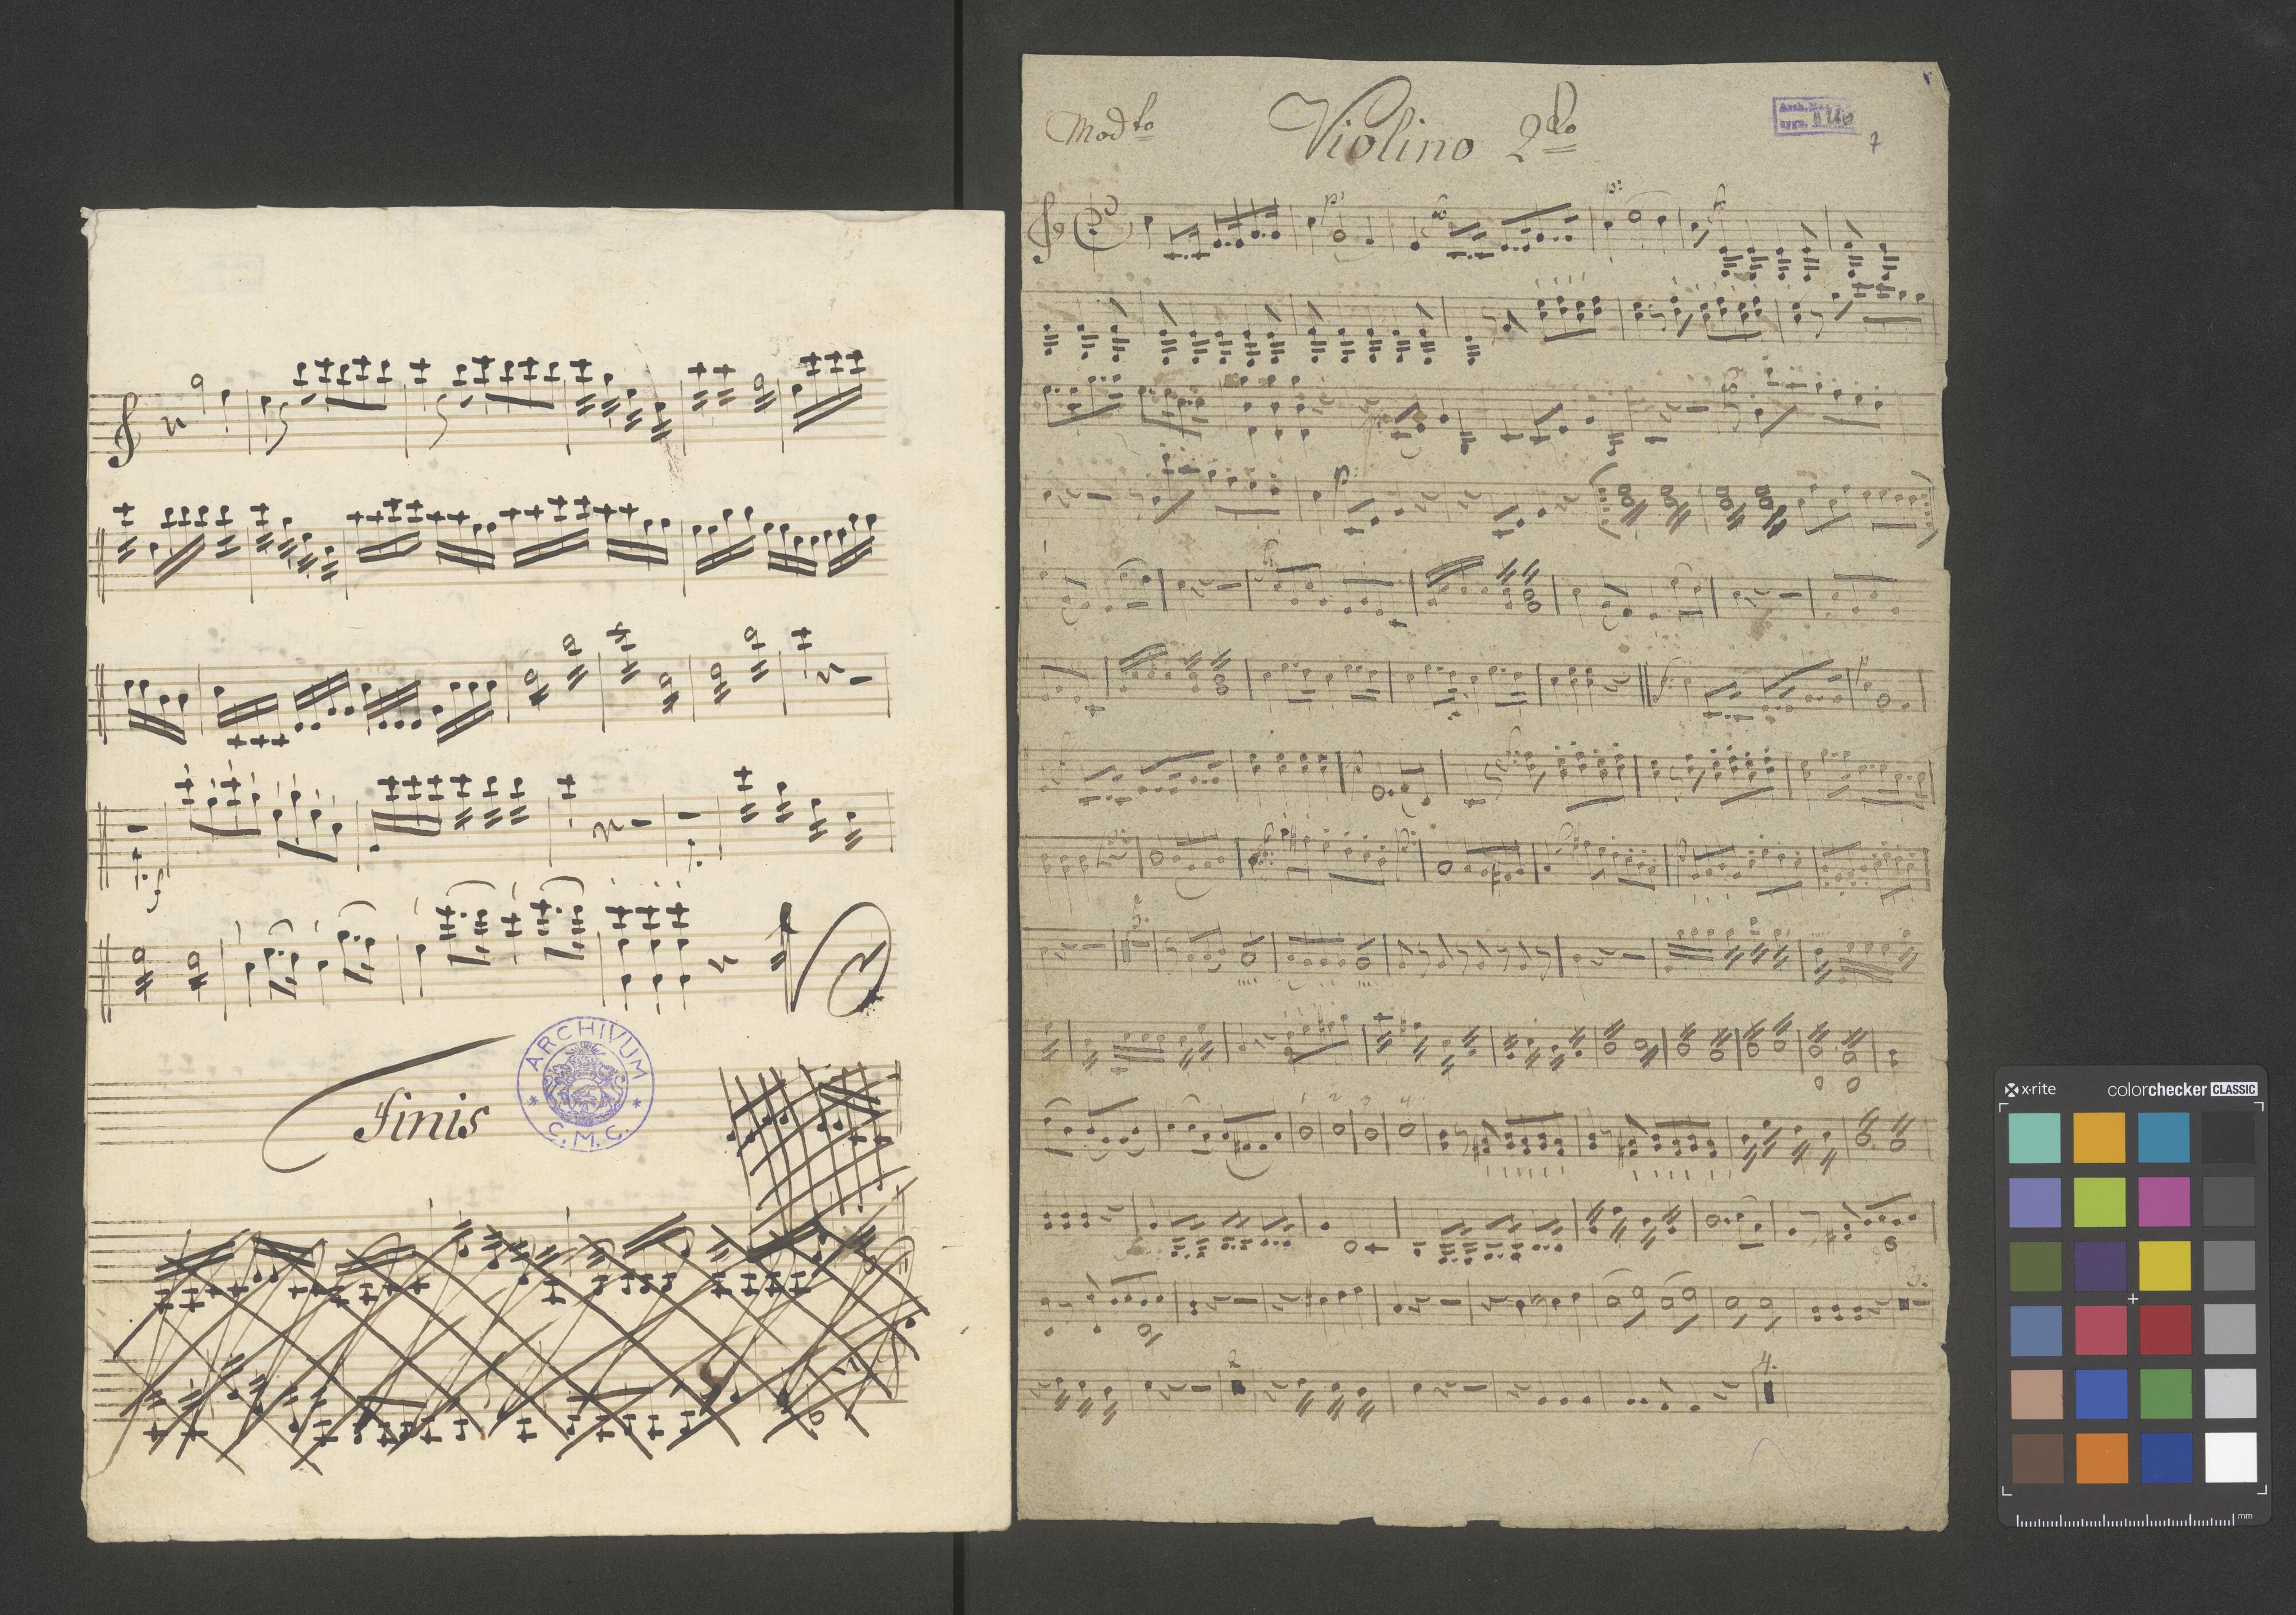 Finis
ARCHIVUM
* C. M. C. *
Modto
Violino 2do
7
p:
p:
f
p
f
1 2 3 4
2
4.
x-rite colorchecker CLASSIC
mm